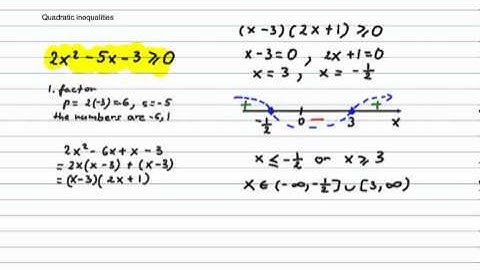 Quadratic inequalities
2x² - 5x - 3 ≥ 0
1. factor
p = 2(-3) = -6, s = -5
the numbers are -6, 1
2x² - 6x + x - 3
= 2x(x - 3) + (x - 3)
= (x - 3)(2x + 1)
(x - 3)(2x + 1) ≥ 0
x - 3 = 0 , 2x + 1 = 0
x = 3 , x = -1/2
+ - +
-1/2 0 3 x
x ≤ -1/2 or x ≥ 3
x ∈ (-∞, -1/2] ∪ [3, ∞)